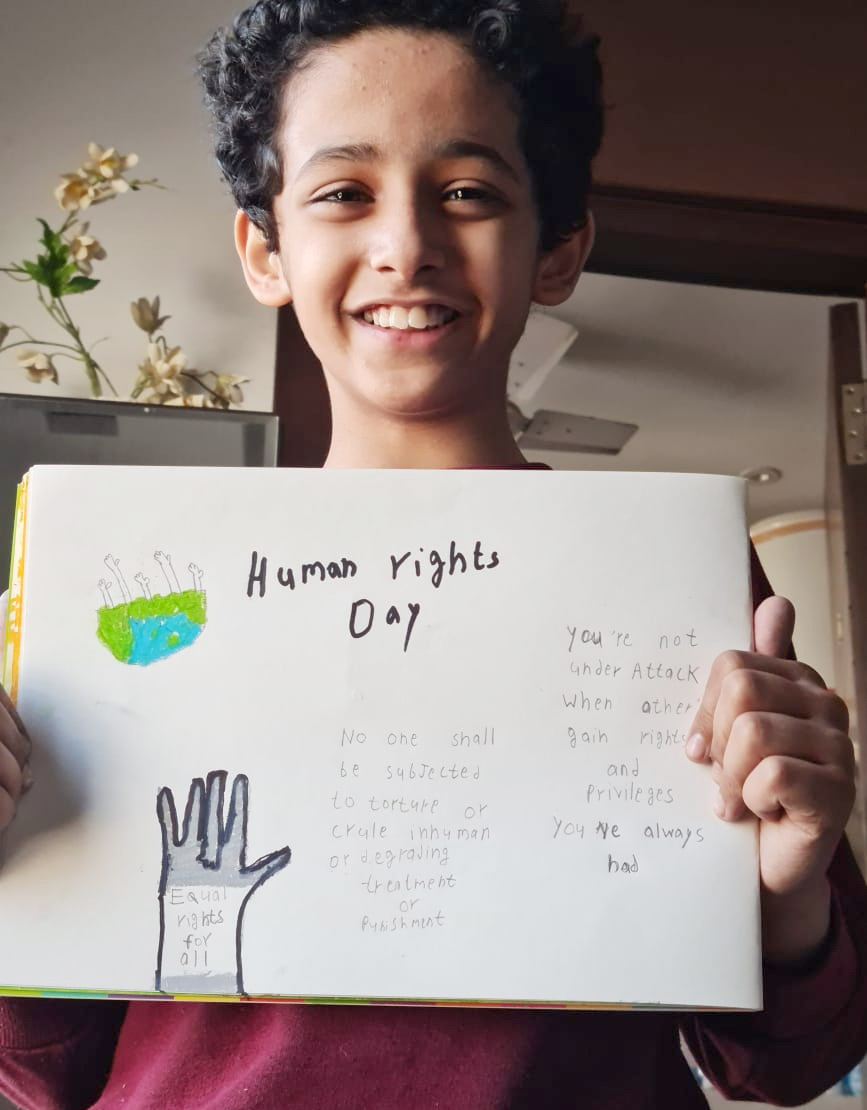 Human rights
Day
You're not
under Attack
When other'
gain rights
and
Privileges
You've always
had
No one shall
be subjected
to torture or
crule inhuman
or degrading
treatment
or
Punishment
Equal
rights
for
all